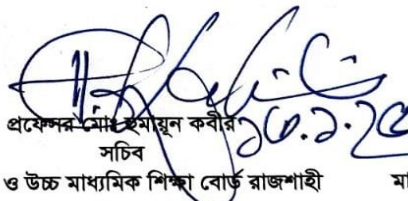 প্রফেসর মোঃ হুমায়ুন কবীর
সচিব
ও উচ্চ মাধ্যমিক শিক্ষা বোর্ড রাজশাহী মা